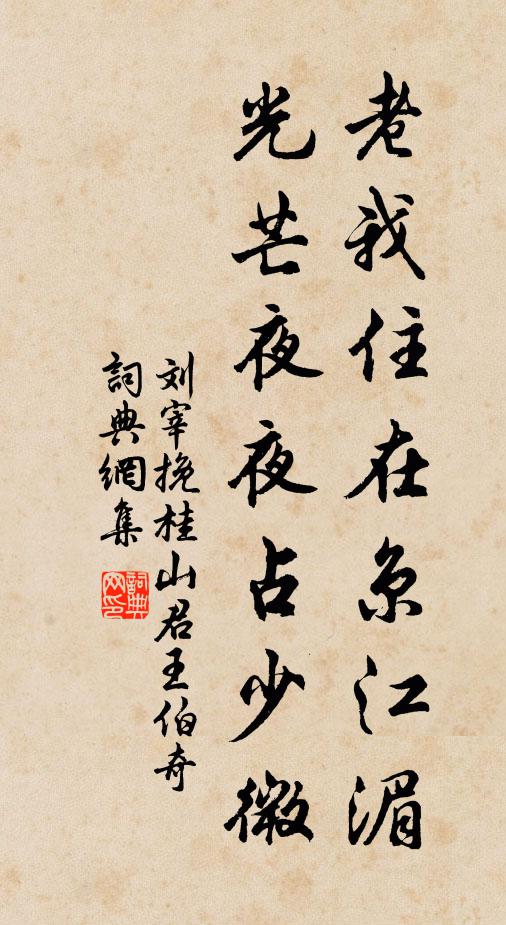 老我住在京江湄
光芒夜夜占少微
刘宰挽桂山君王伯奇
詞典網集
詞典网印